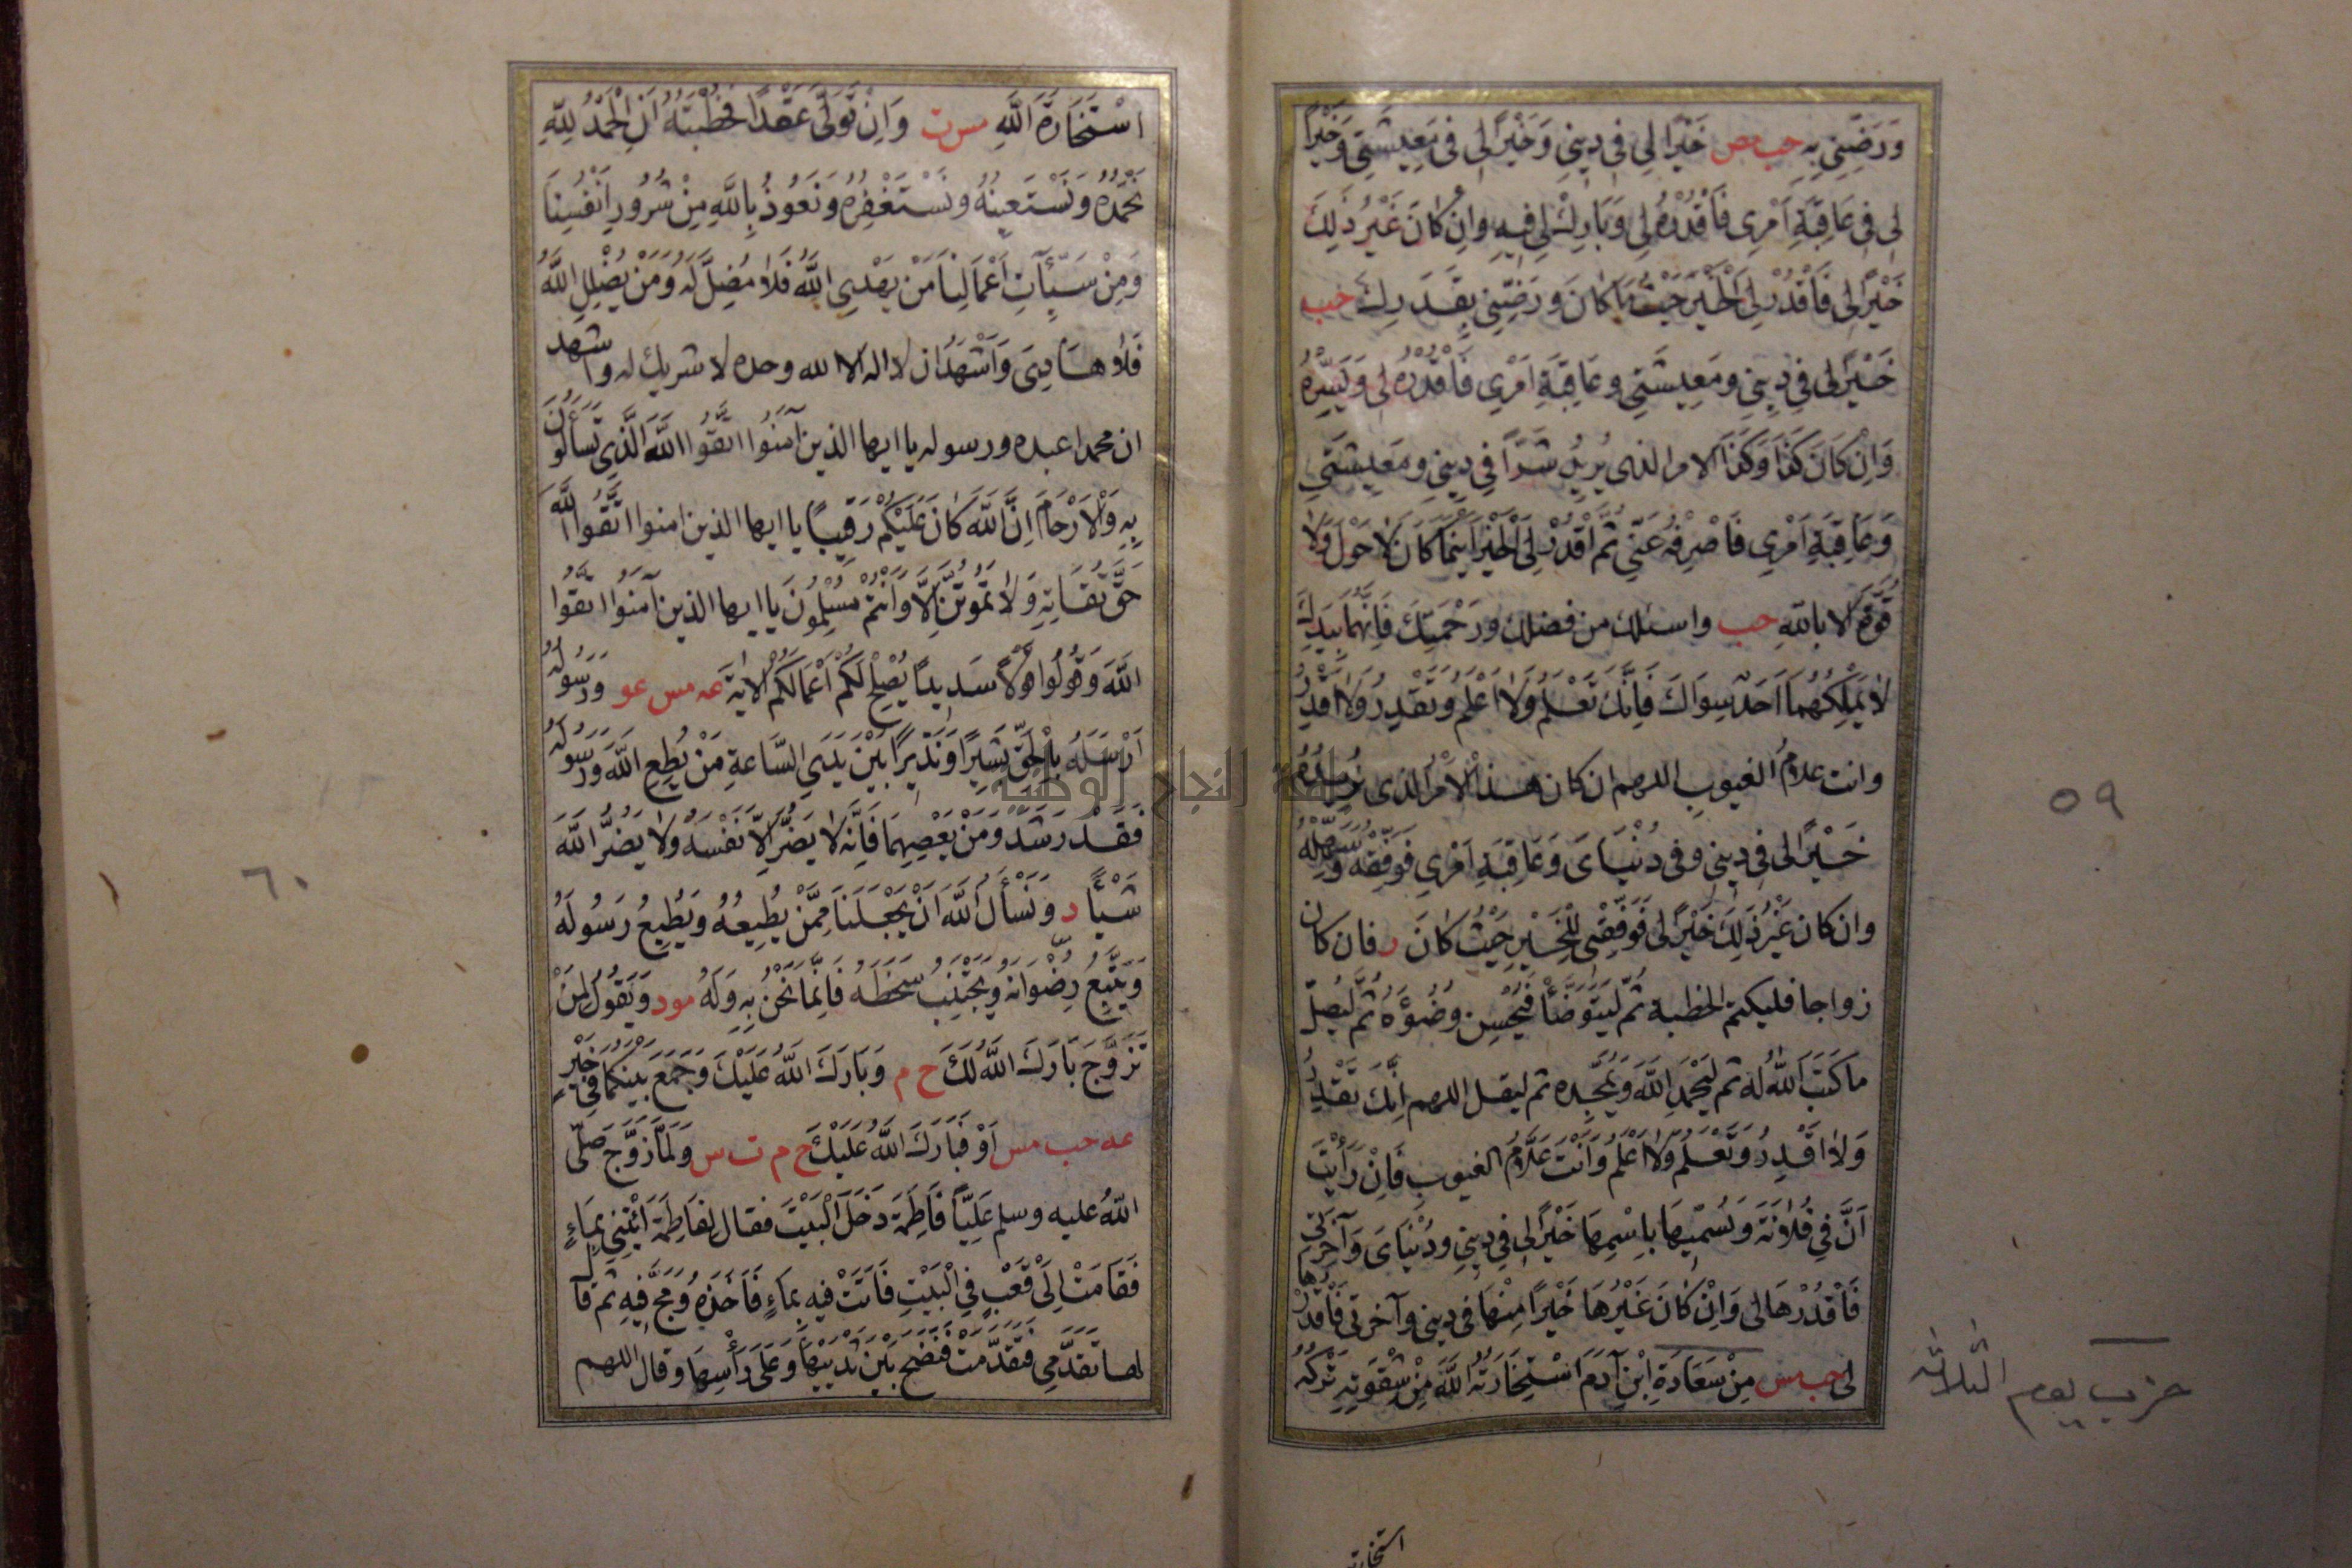 وَرَضِّنِي بِهِ حب مص خَيْرًا لِي فِي دِينِي وَخَيْرًا لِي فِي مَعِيشَتِي وَخَيْرًا
لِي فِي عَاقِبَةِ اَمْرِي فَاقْدُرْهُ لِي وَبَارِكْ لِي فِيهِ وَاِنْ كَانَ غَيْرُ ذٰلِكَ
خَيْرًا لِي فَاقْدُرْ لِيَ الْخَيْرَ حَيْثُ مَا كَانَ وَرَضِّنِي بِقَدَرِكَ حب
خَيْرًا لِي فِي دِينِي وَمَعِيشَتِي وَعَاقِبَةِ اَمْرِي فَاقْدُرْهُ لِي وَيَسِّرْهُ
وَاِنْ كَانَ كَذَا وَكَذَا الامر الذى يُرِيدُ شَرًّا فِي دِينِي وَمَعِيشَتِي
وَعَاقِبَةِ اَمْرِي فَاصْرِفْهُ عَنِّي ثُمَّ اقْدُرْ لِيَ الْخَيْرَ اَيْنَمَا كَانَ لَا حَوْلَ وَلَا
قُوَّةَ الا بالله حب واسئلك من فضلك وَرَحْمَتِكَ فَاِنَّهُمَا بِيَدِكَ
لَا يَمْلِكُهُمَا اَحَدٌ سِوَاكَ فَاِنَّكَ تَعْلَمُ وَلَا اَعْلَمُ وَتَقْدِرُ وَلَا اَقْدِرُ
وانت علامُ الغيوبِ اللهم ان كان هذا الْاَمْرُ الذى نُرِيدُهُ
خَيْرًا لِي فِي دِينِي وَفِي دُنْيَايَ وَعَاقِبَةِ اَمْرِي فَوَفِّقْهُ وَسَهِّلْهُ
وان كان غَيْرُ ذٰلِكَ خَيْرًا لِي فَوَفِّقْنِي لِلْخَيْرِ حَيْثُ كَانَ ر فان كان
زواجا فليكتم الخطبة ثُمَّ لْيَتَوَضَّأْ فَيُحْسِنْ وُضُوءَهُ ثُمَّ لْيُصَلِّ
مَا كَتَبَ اللهُ له ثم لْيَحْمَدِ اللهَ وَيُمَجِّدْه ثم ليقل اللهم اِنَّكَ تَقْدِرُ
وَلَا اَقْدِرُ وَتَعْلَمُ وَلَا اَعْلَمُ وَاَنْتَ عَلَّامُ الغيوبِ فَاِنْ رَأَيْتَ
اَنَّ فِي فُلَانَةَ وَيُسَمِّيهَا بِاسْمِهَا خَيْرًا لِي فِي دِينِي وَدُنْيَايَ وَآخِرَتِي
فَاقْدُرْهَا لِي وَاِنْ كَانَ غَيْرُهَا خَيْرًا مِنْهَا فِي دِينِي وَآخِرَتِي فَاقْدُرْهَا
لى حب مس مِنْ سَعَادَةِ ابْنِ آدَمَ اسْتِخَارَتُهُ اللهَ مِنْ شِقْوَتِهِ تَرْكُهُ
استخارة
٥٩
حزب يوم الثلاثاء
اسْتِخَارَةَ اللهِ مس ت وَاِنْ تَوَلّٰى عَقْدًا فَخُطْبَتُهُ اَنِ الْحَمْدُ لِلّٰهِ
نَحْمَدُهُ وَنَسْتَعِينُهُ وَنَسْتَغْفِرُهُ وَنَعُوذُ بِاللهِ مِنْ شُرُورِ اَنْفُسِنَا
وَمِنْ سَيِّئَاتِ اَعْمَالِنَا مَنْ يَهْدِى اللهُ فَلَا مُضِلَّ لَهُ وَمَنْ يُضْلِلِ اللهُ
فَلَا هَادِيَ وَاَشْهَدُ ان لا اله الا الله وحده لا شريك له واشهد
ان محمدا عبده ورسوله يا ايها الذين آمَنُوا اتَّقُوا اللهَ الَّذِي تَسَاءَلُونَ
بِهِ وَالْاَرْحَامَ اِنَّ اللهَ كَانَ عَلَيْكُمْ رَقِيبًا يا ايها الذين امنوا اتَّقُوا اللهَ
حَقَّ تُقَاتِهِ وَلَا تَمُوتُنَّ اِلَّا وَاَنْتُمْ مُسْلِمُونَ يَا ايها الذين آمَنُوا اتقُوا
اللهَ وَقُولُوا قَوْلًا سَدِيدًا يُصْلِحْ لَكُمْ اَعْمَالَكُمْ الْآيَةَ عه مس عو وَرَسُولُهُ
اَرْسَلَهُ بِالْحَقِّ بَشِيرًا وَنَذِيرًا بَيْنَ يَدَيِ السَّاعَةِ مَنْ يُطِعِ اللهَ وَرَسُولَهُ
فَقَدْ رَشَدَ وَمَنْ يَعْصِهِمَا فَاِنَّهُ لَا يَضُرُّ اِلَّا نَفْسَهُ وَلَا يَضُرُّ اللهَ
شَيْئًا د وَنَسْأَلُ اللهَ اَنْ يَجْعَلَنَا مِمَّنْ يُطِيعُهُ وَيُطِيعُ رَسُولَهُ
وَيَتَّبِعُ رِضْوَانَهُ وَيَجْتَنِبُ سَخَطَهُ فَاِنَّمَا نَحْنُ بِهِ وَلَهُ مو د وَيَقُولُ لِمَنْ
تَزَوَّجَ بَارَكَ اللهُ لَكَ خ م وَبَارَكَ اللهُ عَلَيْكَ وَجَمَعَ بَيْنَكُمَا فِي خَيْرٍ
عه حب مس اَوْ فَبَارَكَ اللهُ عَلَيْكَ خ م ت س وَلَمَّا زَوَّجَ صَلَّى
اللهُ عليه وسلم عَلِيًّا فَاطِمَةَ دَخَلَ الْبَيْتَ فقال لِفَاطِمَةَ ائْتِنِي بِمَاءٍ
فَقَامَتْ اِلَى قَعْبٍ فِي الْبَيْتِ فَاَتَتْ فِيهِ بِمَاءٍ فَاَخَذَهُ وَمَجَّ فِيهِ ثم قَالَ
لها تَقَدَّمِي فَتَقَدَّمَتْ فَنَضَحَ بَيْنَ ثَدْيَيْهَا وَعَلَى رَأْسِهَا وَقَالَ اللهم
٦٠
جامعة النجاح الوطنية